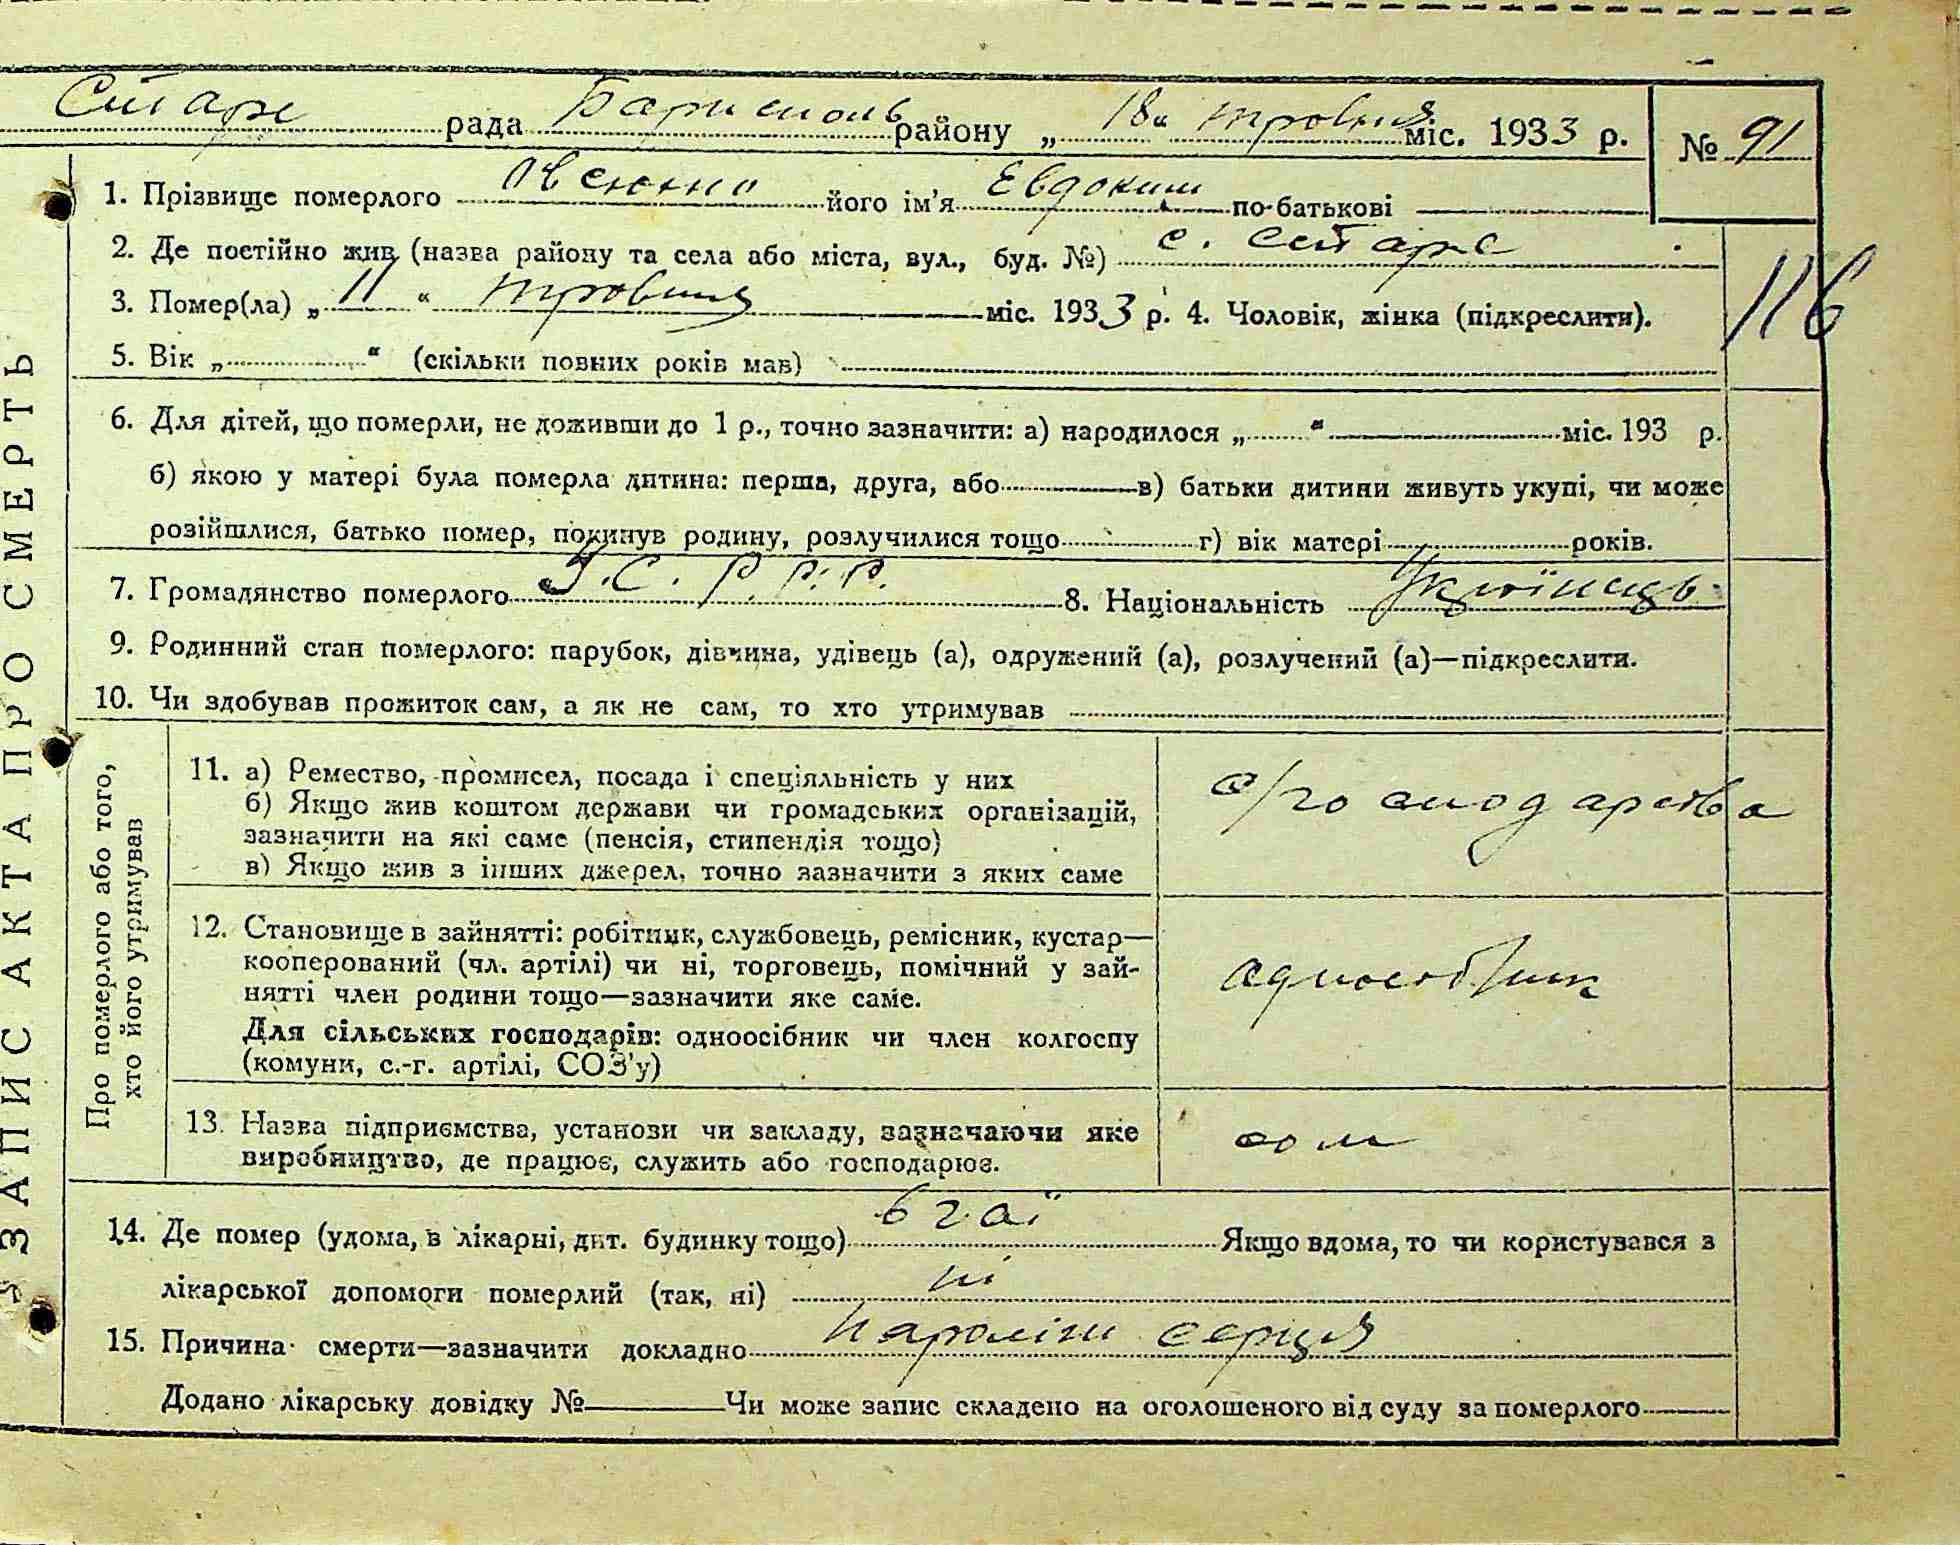 Старе рада Бориспольс району „ 18 “ травня міс. 1933 р. № 91
1. Прізвище померлого його ім'я Евдоким по-батькові
2. Де постійно жив (назва району та села або міста, вул., буд. №) с. Старе
3. Помер(ла) „ 11 “ травня міс. 1933 р. 4. Чоловік, жінка (підкреслити).
116
5. Вік „ “ (скільки повних років мав)
6. Для дітей, що померли, не доживши до 1 р., точно зазначити: а) народилося „ “ міс. 193 р.
б) якою у матері була померла дитина: перша, друга, або в) батьки дитини живуть укупі, чи може
розійшлися, батько помер, покинув родину, розлучилися тощо г) вік матері років.
7. Громадянство померлого У.С.Р.Р. 8. Національність Українець
9. Родинний стан померлого: парубок, дівчина, удівець (а), одружений (а), розлучений (а)—підкреслити.
10. Чи здобував прожиток сам, а як не сам, то хто утримував
ЗАПИС АКТА ПРО СМЕРТЬ
Про померлого або того,
хто його утримував
11. а) Ремество, промисел, посада і спеціяльність у них
б) Якщо жив коштом держави чи громадських організацій,
зазначити на які саме (пенсія, стипендія тощо)
в) Якщо жив з інших джерел, точно зазначити з яких саме
с/господарства
12. Становище в зайнятті: робітник, службовець, ремісник, кустар—
кооперований (чл. артілі) чи ні, торговець, помічний у зай-
нятті член родини тощо—зазначити яке саме.
Для сільських господарів: одноосібник чи член колгоспу
(комуни, с.-г. артілі, СОЗ'у)
13. Назва підприємства, установи чи закладу, зазначаючи яке
виробництво, де працює, служить або господарює.
14. Де помер (удома, в лікарні, дит. будинку тощо) в гаї Якщо вдома, то чи користувався з
лікарської допомоги померлий (так, ні) ні
15. Причина смерти—зазначити докладно серця
Додано лікарську довідку № Чи може запис складено на оголошеного від суду за померлого